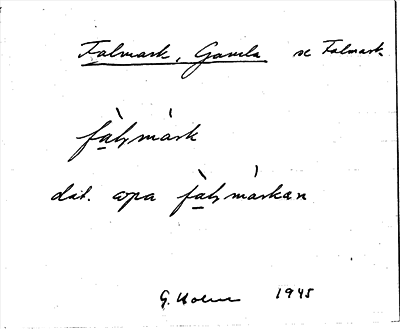 Falmark, Gamla se Falmark
fàḷmàrk
dat. opa fàḷmàrkan
G. Holm 1945